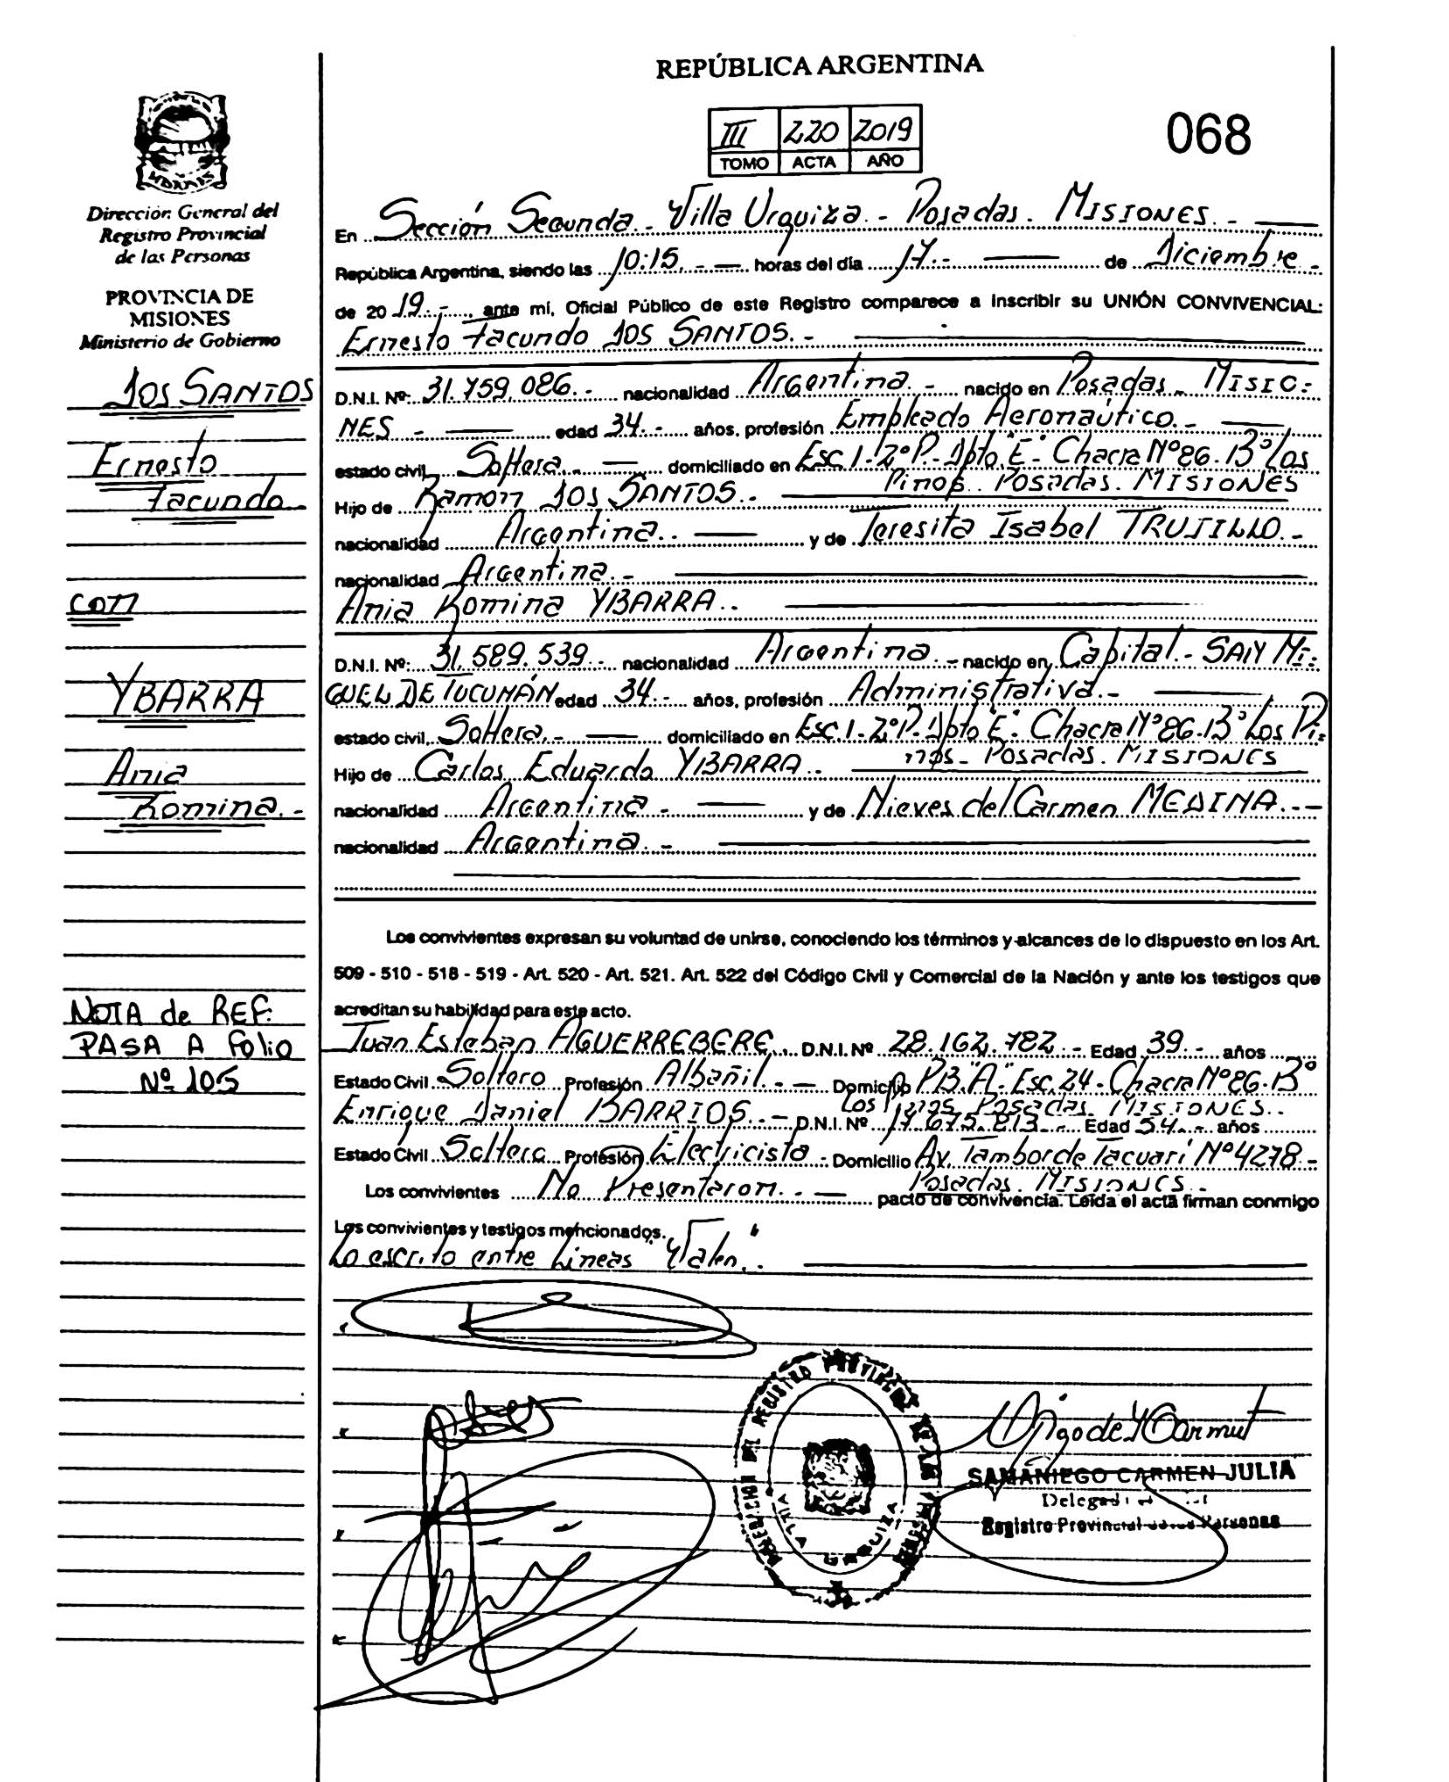 REPÚBLICA ARGENTINA
III 220 2019
TOMO ACTA AÑO
068
Dirección General del
Registro Provincial
de las Personas
PROVINCIA DE
MISIONES
Ministerio de Gobierno
DOS SANTOS
Ernesto
Facundo.-
con
YBARRA
Ania
Romina.-
NOTA de REF:
PASA A Folio
Nº 105
En Sección Segunda.- Villa Urquiza.- Posadas. MISIONES.-
República Argentina, siendo las 10:15.- horas del día 17.- de Diciembre.-
de 2019.-, ante mí, Oficial Público de este Registro comparece a inscribir su UNIÓN CONVIVENCIAL:
Ernesto Facundo DOS SANTOS.-
D.N.I. Nº: 31.759.086.- nacionalidad Argentina.- nacido en Posadas.- MISIO-
NES.- edad 34.- años, profesión Empleado Aeronáutico.-
estado civil Soltero.- domiciliado en Esc 1-2º P- Dpto "E"- Chacra Nº 86- Bº Los
Pinos. Posadas. MISIONES
Hijo de Ramón DOS SANTOS.-
nacionalidad Argentina.- y de Teresita Isabel TRUJILLO.-
nacionalidad Argentina.-
Ania Romina YBARRA.-
D.N.I. Nº: 31.589.539.- nacionalidad Argentina.- nacido en Capital.- SAN MI-
GUEL DE TUCUMÁN edad 34.- años, profesión Administrativa.-
estado civil Soltera.- domiciliado en Esc 1-2º P- Dpto "E"- Chacra Nº 86- Bº Los Pi-
nos- Posadas. MISIONES
Hijo de Carlos Eduardo YBARRA.-
nacionalidad Argentina.- y de Nieves del Carmen MEDINA.-
nacionalidad Argentina.-
Los convivientes expresan su voluntad de unirse, conociendo los términos y alcances de lo dispuesto en los Art.
509 - 510 - 518 - 519 - Art. 520 - Art. 521. Art. 522 del Código Civil y Comercial de la Nación y ante los testigos que
acreditan su habilidad para este acto.
Juan Esteban AGUERREBERE. D.N.I. Nº 28.162.782.- Edad 39.- años
Estado Civil Soltero Profesión Albañil.- Domicilio PB. "A" Esc. 24- Chacra Nº 86- Bº
Los Pinos Posadas MISIONES.-
Enrique Daniel BARRIOS.- D.N.I. Nº 17.675.813.- Edad 54.- años
Estado Civil Soltero Profesión Electricista- Domicilio Av. Tambor de Tacuarí Nº 4278-
Posadas. MISIONES.-
Los convivientes No Presentaron.- pacto de convivencia. Leída el acta firman conmigo
Los convivientes y testigos mencionados.
Lo escrito entre Líneas "Valen".-
VILLA URQUIZA
SAMANIEGO CARMEN JULIA
Registro Provincial de las Personas